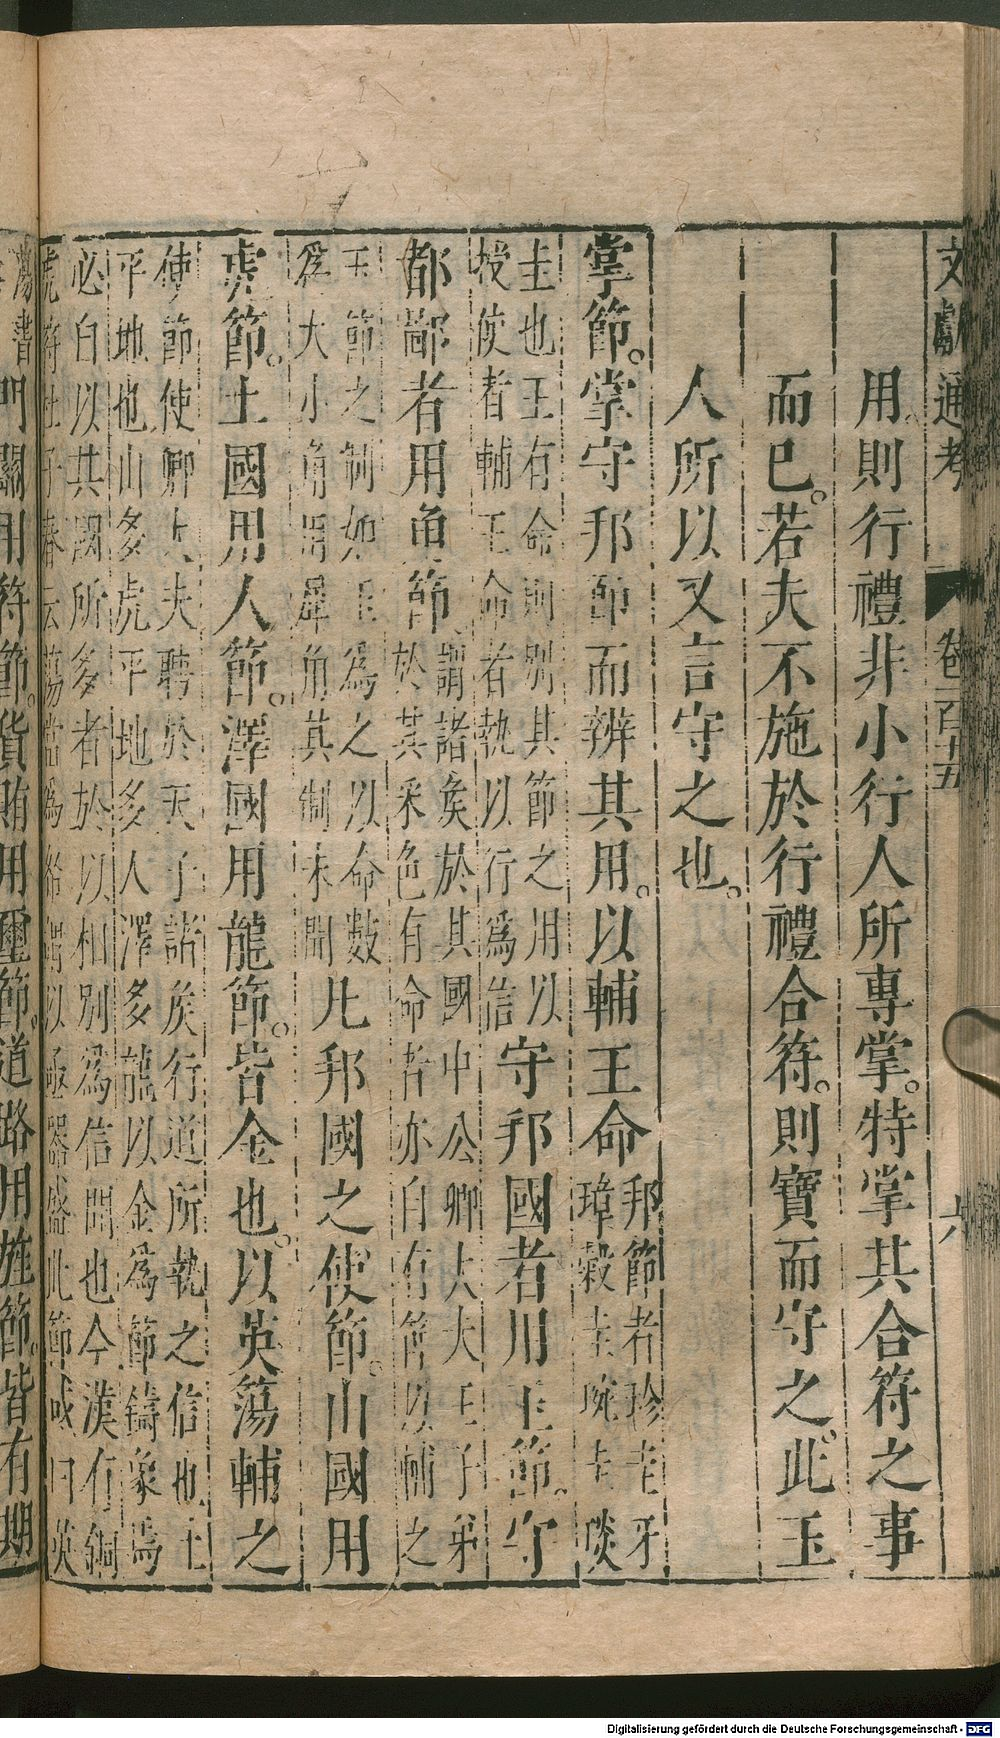 文獻通考 卷一百十五 六
用則行禮非小行人所專掌。特掌其合符之事
而已。若夫不施於行禮合符。則寶而守之。此玉
人所以又言守之也。
掌節。掌守邦節而辨其用。以輔王命邦節者珍圭牙
璋穀圭琬圭琰
圭也王有命則別其節之用以
授使者輔王命者執以行爲信守邦國者用玉節。守
都鄙者用角節。謂諸矦於其國中公卿大夫王子弟
於其采色有命者亦自有節以輔之
玉節之制如王爲之以命數
爲大小角用犀角其制未聞凡邦國之使節。山國用
虎節。土國用人節。澤國用龍節。皆金也。以英蕩輔之
使節使卿大夫聘於天子諸矦行道所執之信也土
平地也山多虎平地多人澤多龍以金爲節鑄象焉
必自以其國所多者於以相別爲信明也今漢有銅
虎符杜子春云蕩當爲帑謂以函器盛此節或曰英
蕩書門關用符節。貨賄用璽節。道路用旌節。皆有期
Digitalisierung gefördert durch die Deutsche Forschungsgemeinschaft - DFG